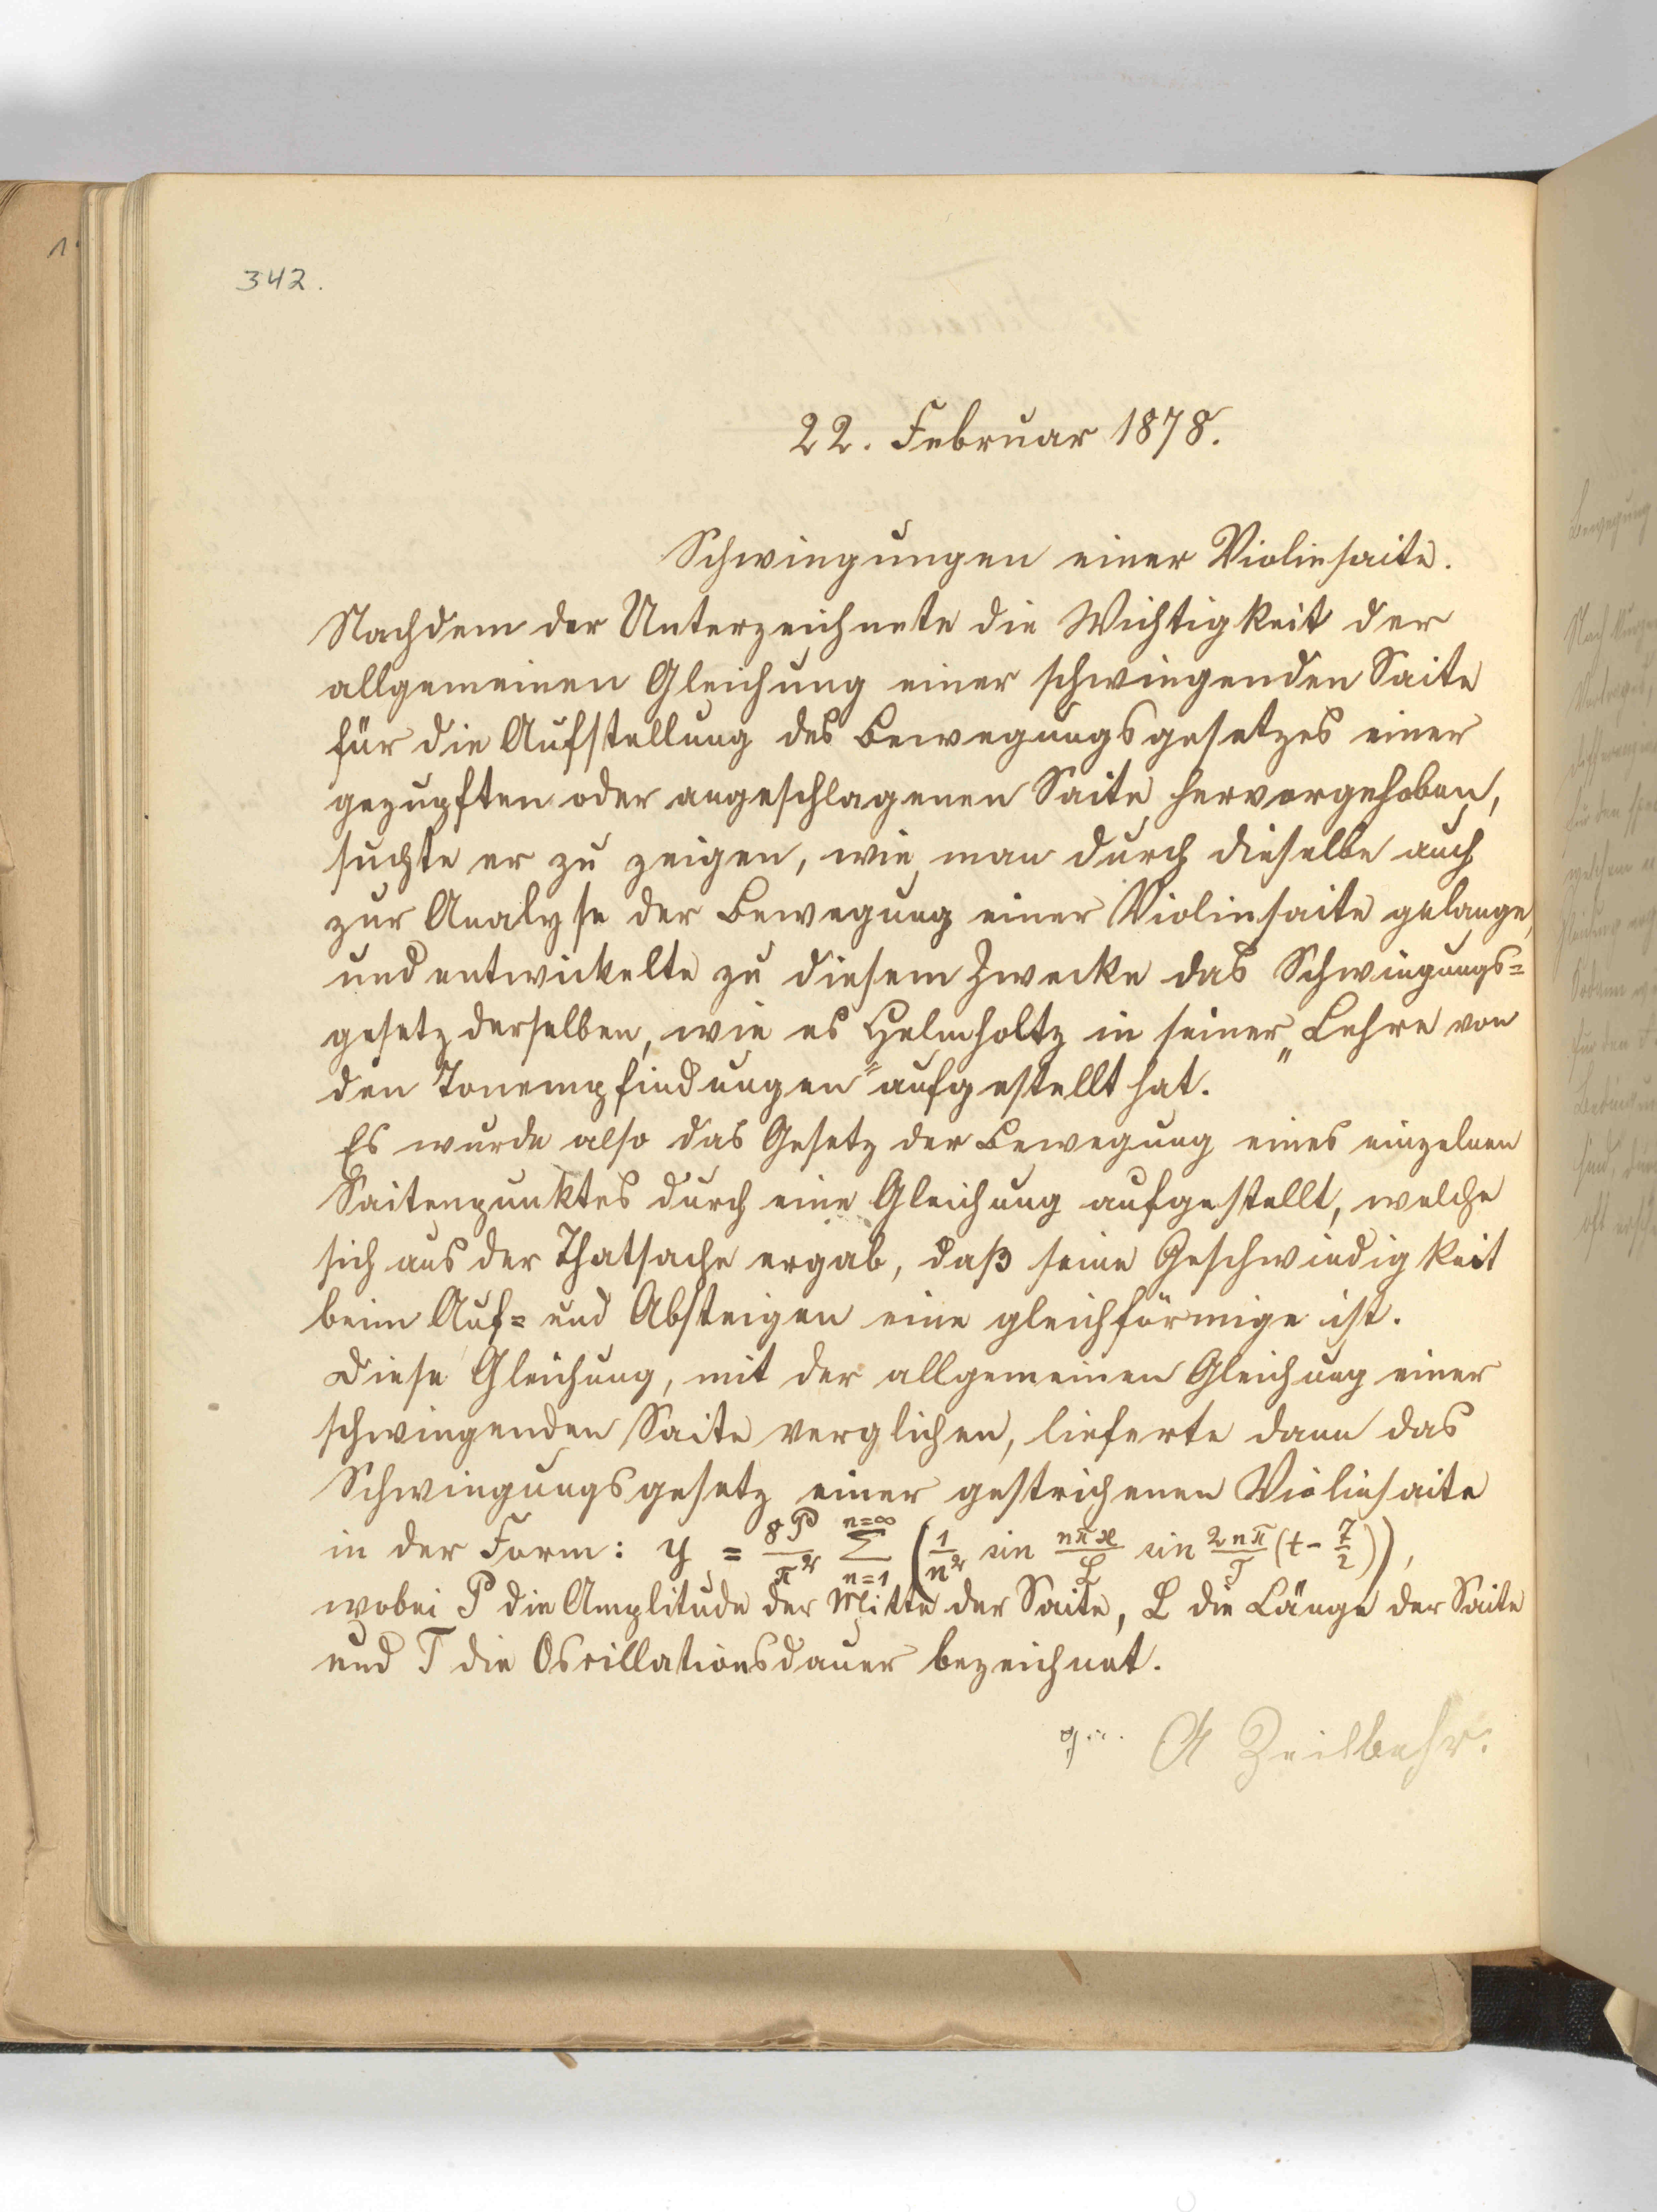 342.
22. Februar 1878.
Schwingungen einer Violinsaite.
Nachdem der Unterzeichnete die Wichtigkeit der
allgemeinen Gleichung einer schwingenden Saite
für die Aufstellung des Bewegungsgesetzes einer
gezupften oder angeschlagenen Saite hervorgehoben,
suchte er zu zeigen, wie man durch dieselbe auch
zur Analyse der Bewegung einer Violinsaite gelange,
und entwickelte zu diesem Zwecke das Schwingungs=
gesetz derselben, wie es Helmholtz in seiner „Lehre von
den Tonempfindungen“ aufgestellt hat.
Es wurde also das Gesetz der Bewegung eines einzelnen
Saitenpunktes durch eine Gleichung aufgestellt, welche
sich aus der Thatsache ergab, daß seine Geschwindigkeit
beim Auf= und Absteigen eine gleichförmige ist.
Diese Gleichung, mit der allgemeinen Gleichung einer
schwingenden Saite verglichen, lieferte dann das
Schwingungsgesetz einer gestrichenen Violinsaite
in der Form: y = 8P/π² Σ n=1 n=∞ (1/n² sin nπx/L sin 2nπ/T (t - 7/2)),
wobei P die Amplitude der Mitte der Saite, L die Länge der Saite
und T die Oscillationsdauer bezeichnet.
A Zeilbehr.